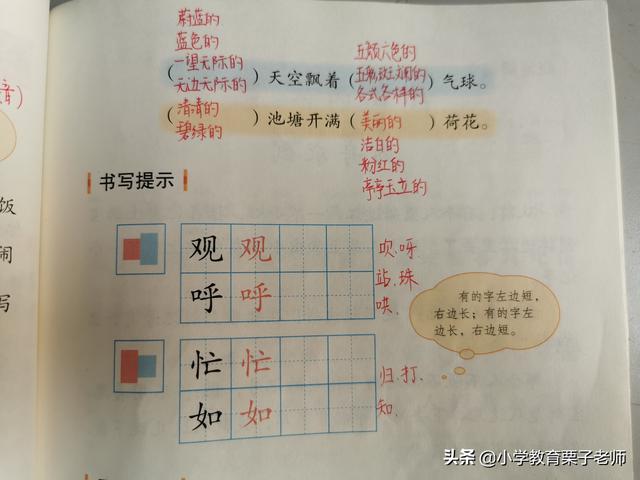 蔚蓝的
蓝色的
一望无际的
无边无际的
五颜六色的
五颜斑斓的
各式各样的
( )天空飘着( )气球。
清清的
碧绿的
美丽的
( )池塘开满( )荷花。
洁白的
粉红的
亭亭玉立的
音)
书写提示
饭
闹
写
观 观
吹.呀.
站.珠
哄.
呼 呼
有的字左边短，
右边长；有的字左
边长，右边短。
忙 忙
归.打.
知.
如 如
头条 @小学教育栗子老师